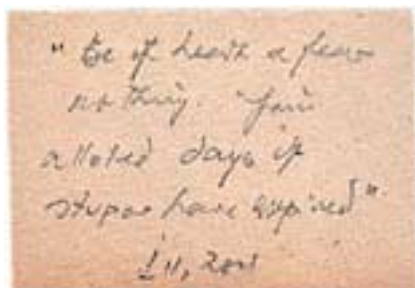 "Be of heart & fear
nothing. Your
alloted days of
stupor have expired"